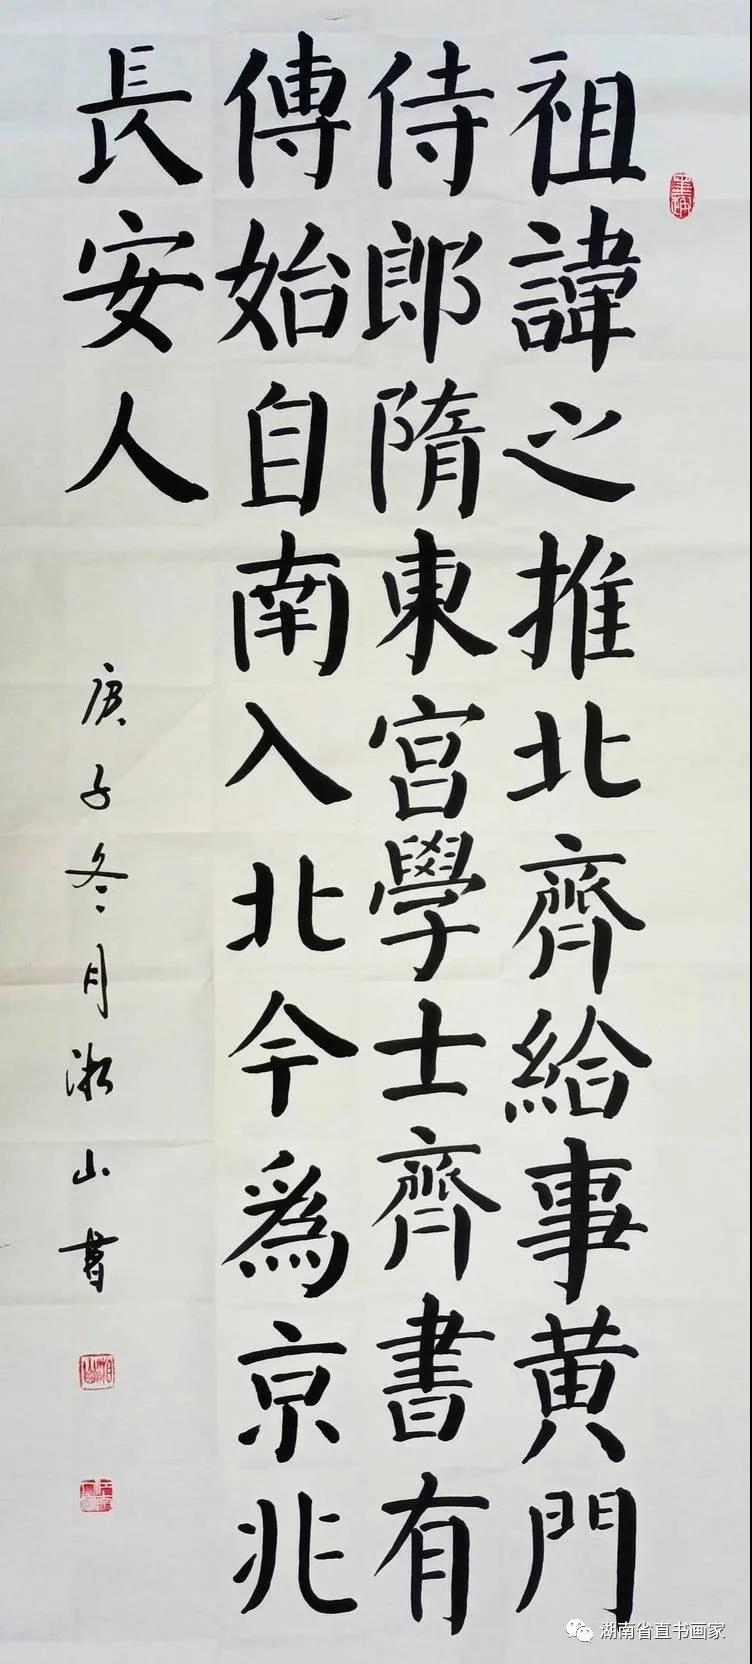 祖諱之推北齊給事黄門
侍郎隋東宫學士齊書有
傳始自南入北今為京兆
長安人
庚子冬月湘山書
湖南省直书画家